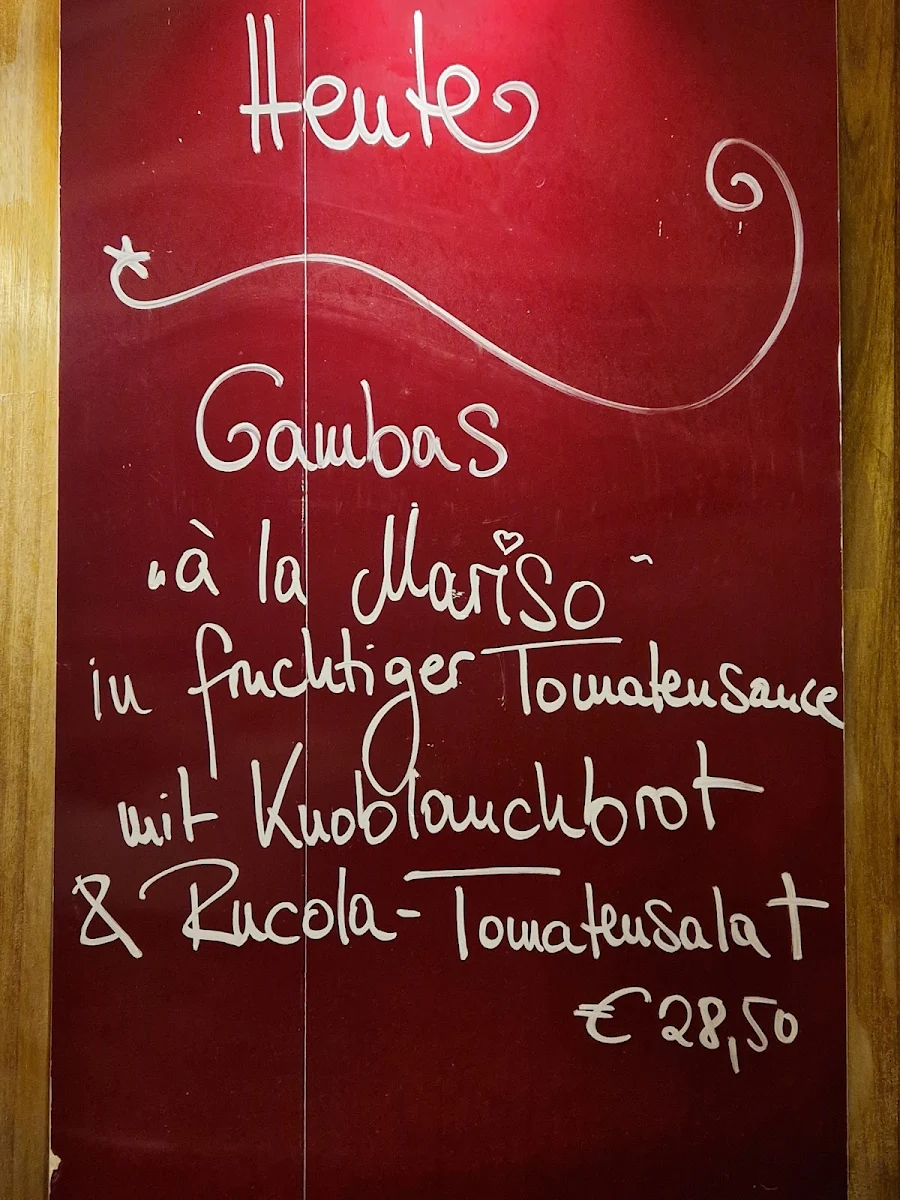 Heute
Gambas
„à la Mariso“
in fruchtiger Tomatensauce
mit Knoblauchbrot
& Rucola-Tomatensalat
€ 28,50